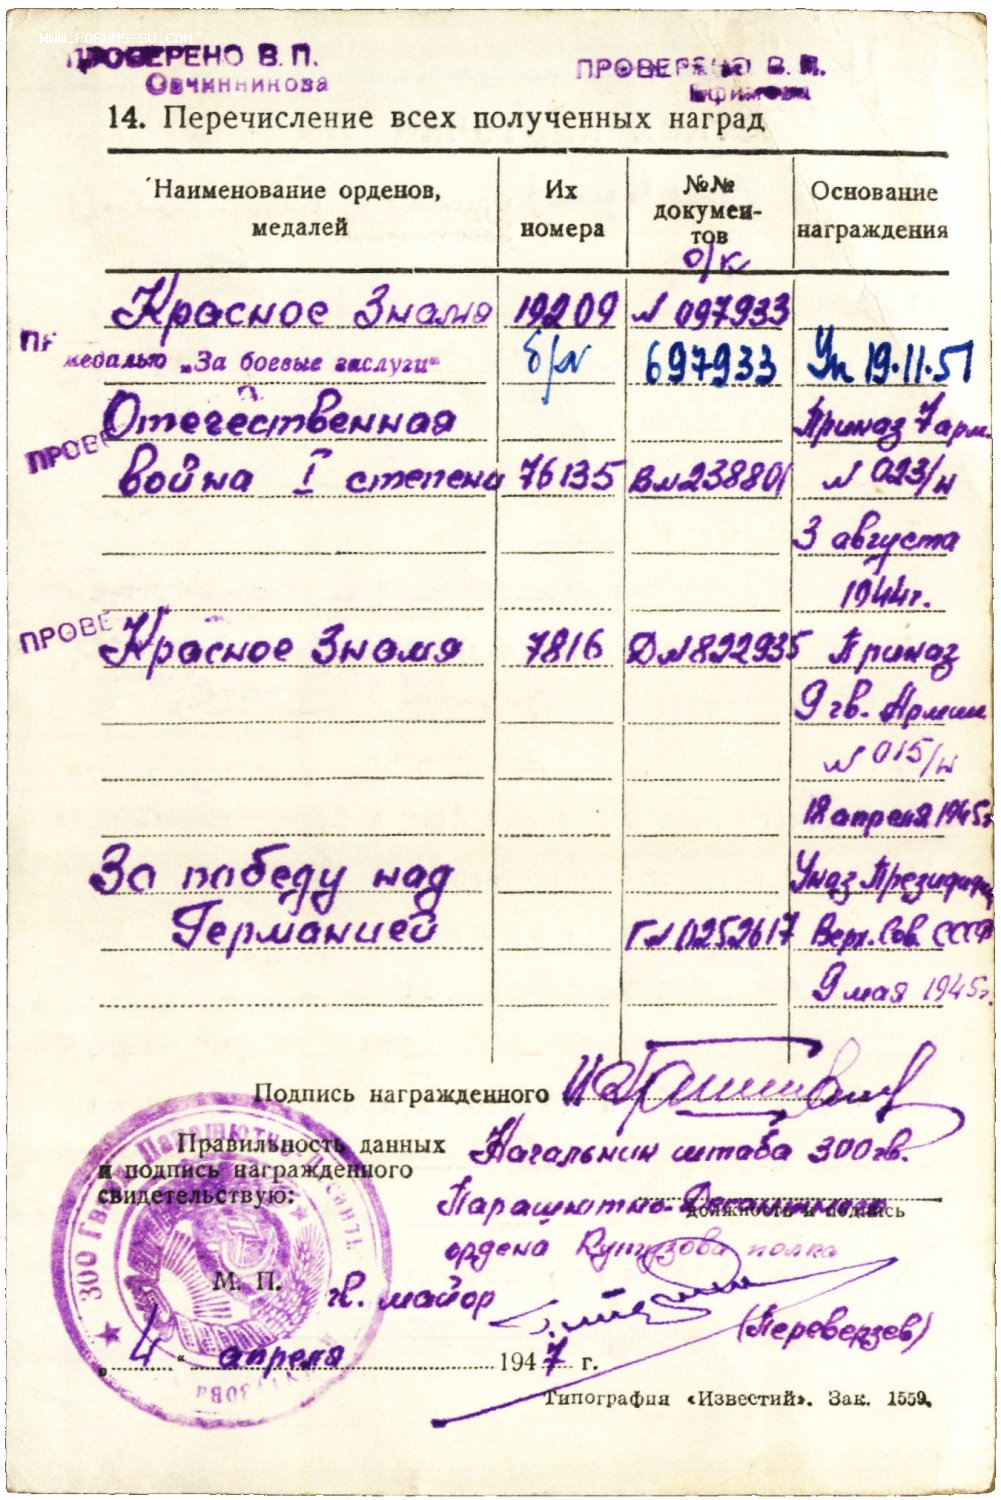 WWW.FORUMS-SU.COM
ПРОВЕРЕНО В. П.
Овчинникова
ПРОВЕРЕНО В. П.
14. Перечисление всех полученных наград
Наименование орденов, медалей
Их номера
№№ докумен-тов
о/к
Основание награждения
Красное Знамя 19209 № 097933
медалью „За боевые заслуги“ б/н 697933 Ук 19.11.51
Отечественная Приказ 7 арм.
ПРОВЕ
война I степени 76135 В№238801 № 023/н
3 августа
1944г.
ПРОВЕ
Красное Знамя 7816 Д№822935 Приказ
9 гв. Армии
№ 015/н
18 апреля 1945г.
За победу над Указ Президиума
Германией Г№0252617 Верх. Сов. СССР
9 мая 1945г.
Подпись награжденного
Правильность данных
и подпись награжденного
свидетельствую:
Начальник штаба 300 гв.
Парашютно-Десантного
должность и подпись
ордена Кутузова полка
М. П.
гв. майор
(Переверзев)
„ 4 “ апреля 1947 г.
300 Гвард. Парашютно-Десантн
Типография «Известий». Зак. 1559.